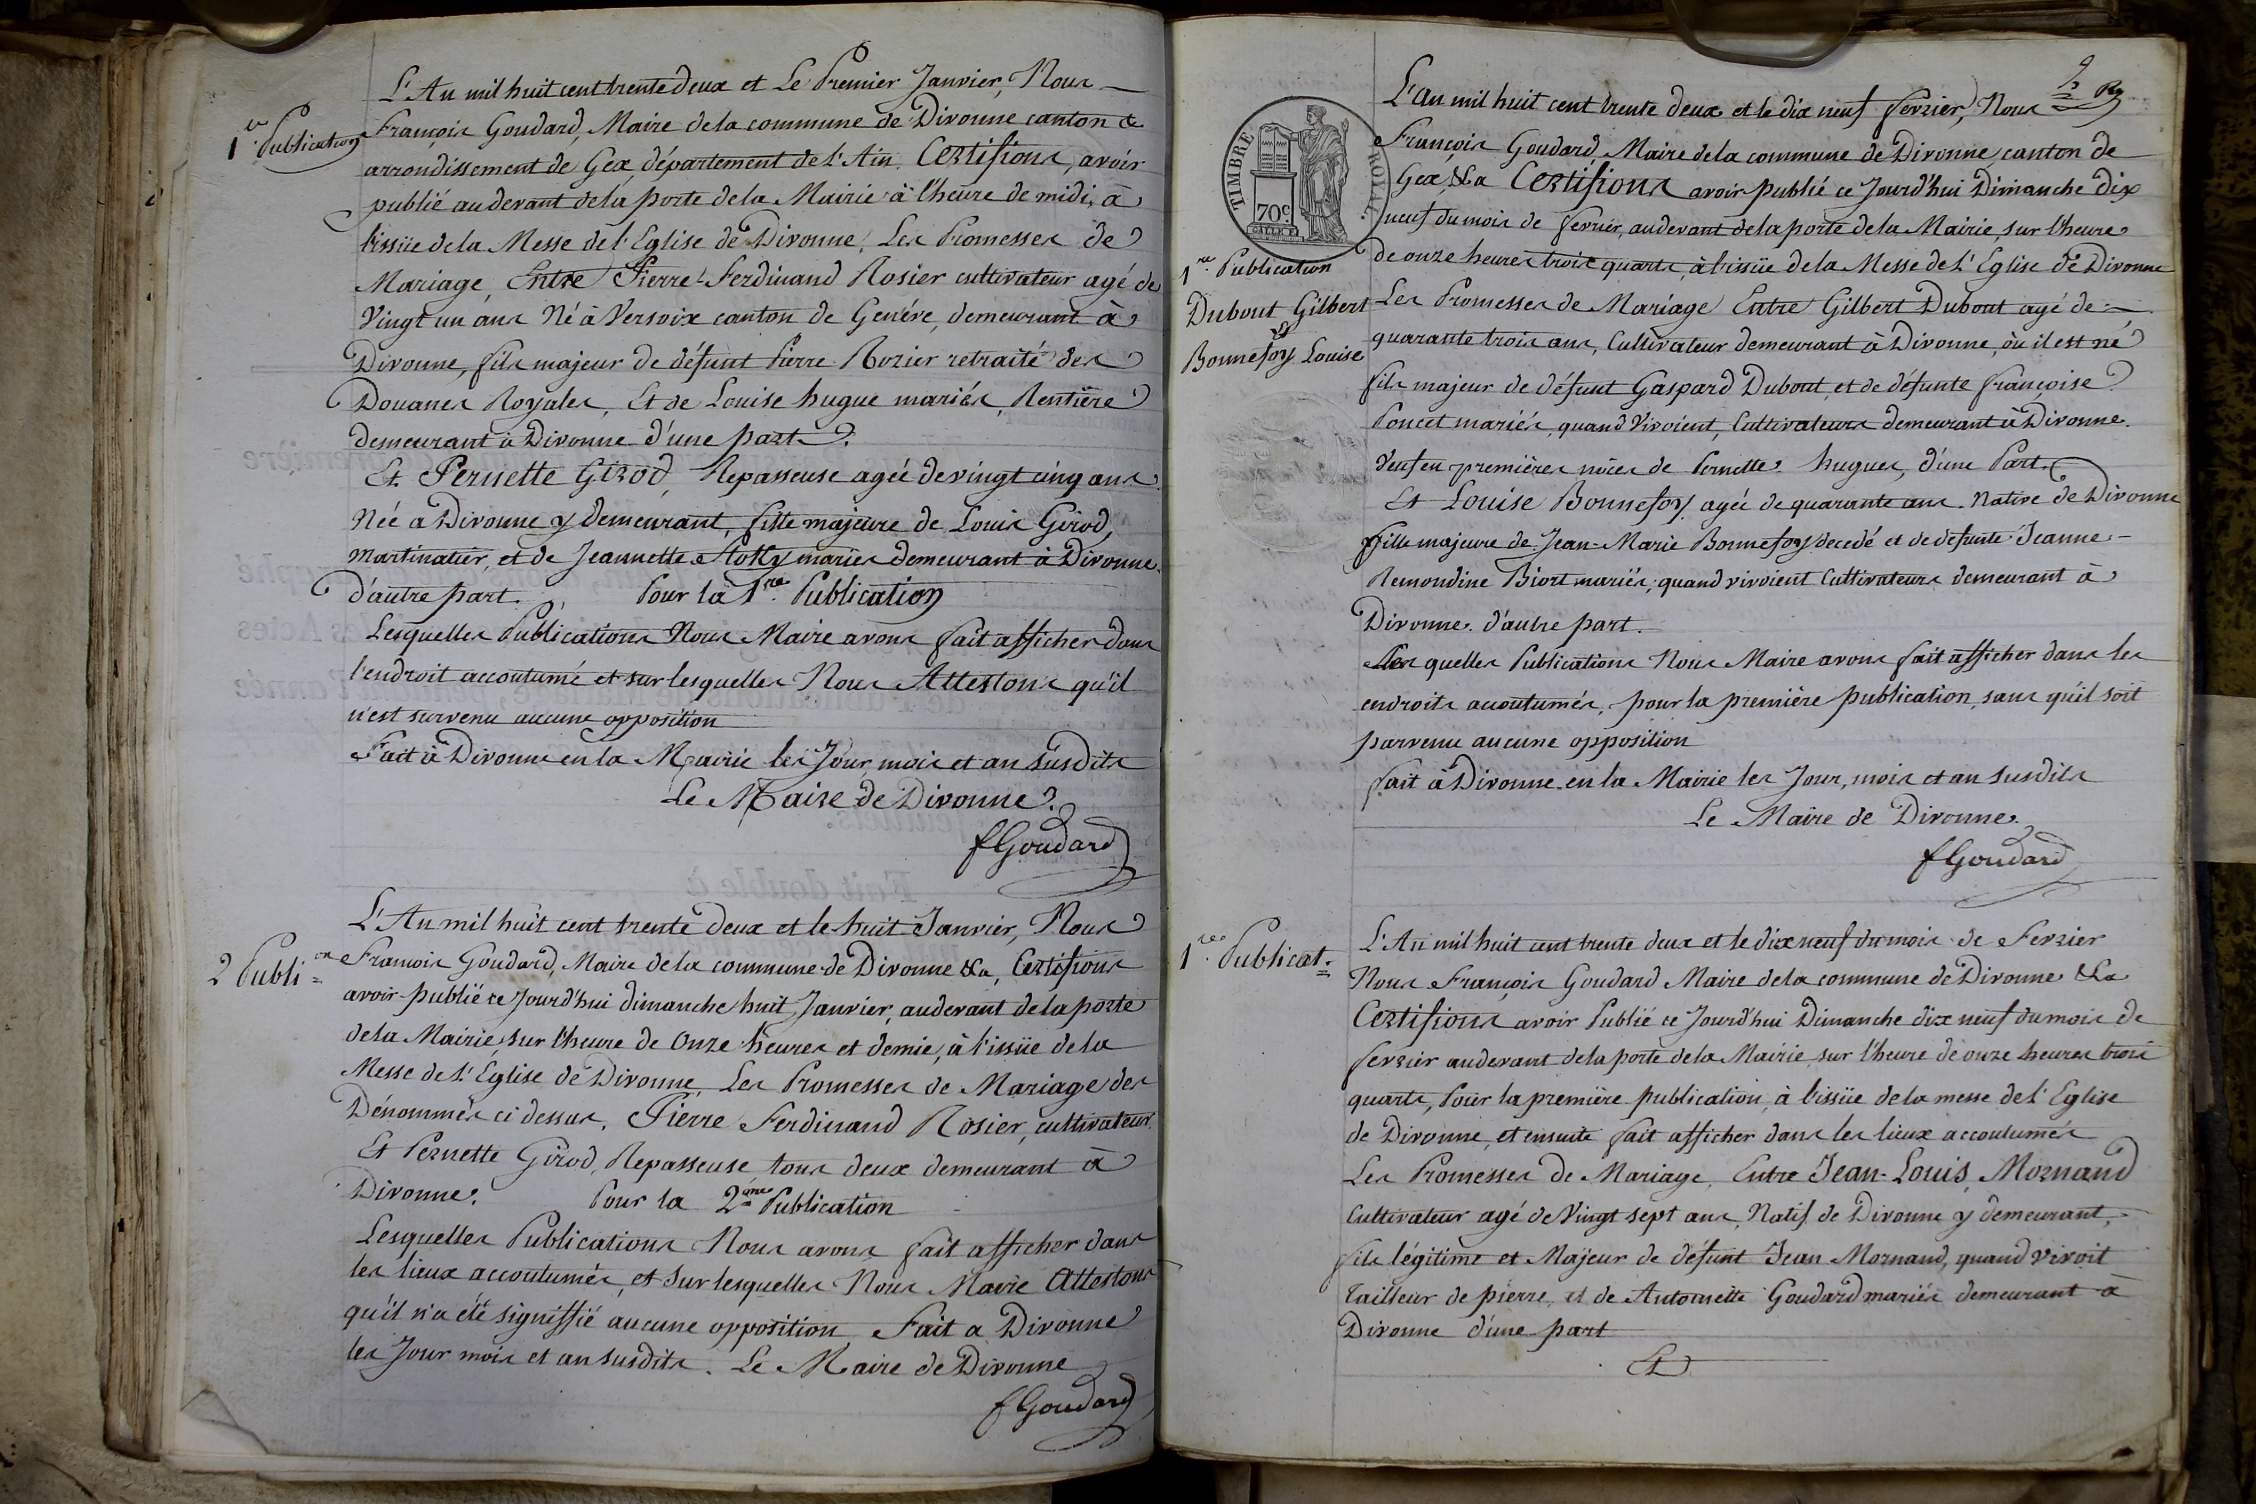 1re Publication
L'An mil huit cent trente deux et Le Premier Janvier, Nous
François Goudard, Maire de la commune de Divonne canton &
arrondissement de Gex, département de l'Ain, Certifions, avoir
publié au devant de la porte de la Mairie à l'heure de midi, à
l'issüe de la Messe de l'Eglise de Divonne, Les Promesses de
Mariage, Entre Pierre-Ferdinand Rosier cultivateur agé de
Vingt un ans Né à Versoix canton de Genéve, demeurant à
Divonne, fils majeur de défunt Pierre Rozier retraité des
Douanes Royales, Et de Louise hugue mariés, Rentière
demeurant à Divonne d'une part.
Et Pernette Girod, Repasseuse agée de vingt cinq ans
Née a Divonne y demeurant, fille majeure de Louis Girod,
Martinatier, et de Jeannette mariés demeurant à Divonne
d'autre part. Pour la 1re Publication
Lesquelles Publications Nous Maire avons fait afficher dans
l'endroit accoutumé et sur lesquelles Nous Attestons qu'il
n'est survenu aucune opposition
Fait à Divonne en la Mairie les Jour, mois et an susdits
Le Maire de Divonne.
fGoudard
2 Publi.on
L'An mil huit cent trente deux et le huit Janvier, Nous
François Goudard, Maire de la commune de Divonne &a, Certifions
avoir publié ce Jourd'hui dimanche huit Janvier, au devant de la porte
de la Mairie, sur l'heure de Onze heures et demie, à l'issüe de la
Messe de l'Eglise de Divonne, Les Promesses de Mariage des
Dénommés ci dessus, Pierre Ferdinand Rosier, cultivateur
Et Pernette Girod, Repasseuse tous deux demeurant à
Divonne. Pour la 2ème Publication
Lesquelles Publications Nous avons fait afficher dans
les lieux accoutumés, et sur lesquelles Nous Maire Attestons
qu'il n'a été signiffié aucune opposition Fait a Divonne
les Jour mois et an susdits. Le Maire de Divonne
fGoudard
2
TIMBRE ROYAL
70c
1re Publication
Dubout Gilbert
&
Bonnefoy Louise
L'an mil huit cent trente deux et le dix neuf fevrier, Nous
François Goudard Maire de la commune de Divonne canton de
Gex, &a Certifions avoir publié ce Jourd'hui Dimanche dix
neuf du mois de fevrier, au devant de la porte de la Mairie, sur l'heure
de onze heures trois quarts, à l'issüe de la Messe de l'Eglise de Divonne
Les Promesses de Mariage Entre Gilbert Dubout agé de
quarante trois ans, Cultivateur demeurant à Divonne, où il est né
fils majeur de défunt Gaspard Dubout, et de défunte françoise
Poncet mariés, quand vivoient, Cultivateurs demeurant à Divonne.
Veuf en premières nôces de Pernette hugues, d'une Part.
Et Louise Bonnefoy agée de quarante ans Native de Divonne
fille majeure de Jean-Marie Bonnefoy decedé et de defunte Jeanne
Remondine Biort mariés, quand vivoient Cultivateurs demeurant à
Divonne. d'autre part.
Les quelles Publications Nous Maire avons fait afficher dans les
endroits accoutumés, pour la première publication, sans qu'il soit
parvenu aucune opposition
fait à Divonne en la Mairie les Jour, mois et an susdits
Le Maire de Divonne.
fGoudard
1re Publicat.
L'An mil huit cent trente deux et le dix neuf du mois de Fevrier
Nous François Goudard Maire de la commune de Divonne &a
Certifions avoir Publié ce Jourd'hui Dimanche dix neuf du mois de
fevrier au devant de la porte de la Mairie, sur l'heure de onze heures trois
quarts, Pour la première publication, à l'issüe de la messe de l'Eglise
de Divonne, et ensuite fait afficher dans les lieux accoutumés
Les Promesses de Mariage, Entre Jean-Louis Mornand
Cultivateur agé de Vingt sept ans, Natif de Divonne y demeurant,
fils légitime et Majeur de défunt Jean Mornand, quand vivoit
Tailleur de pierre, et de Antoinette Goudard mariés demeurant à
Divonne d'une part
Et